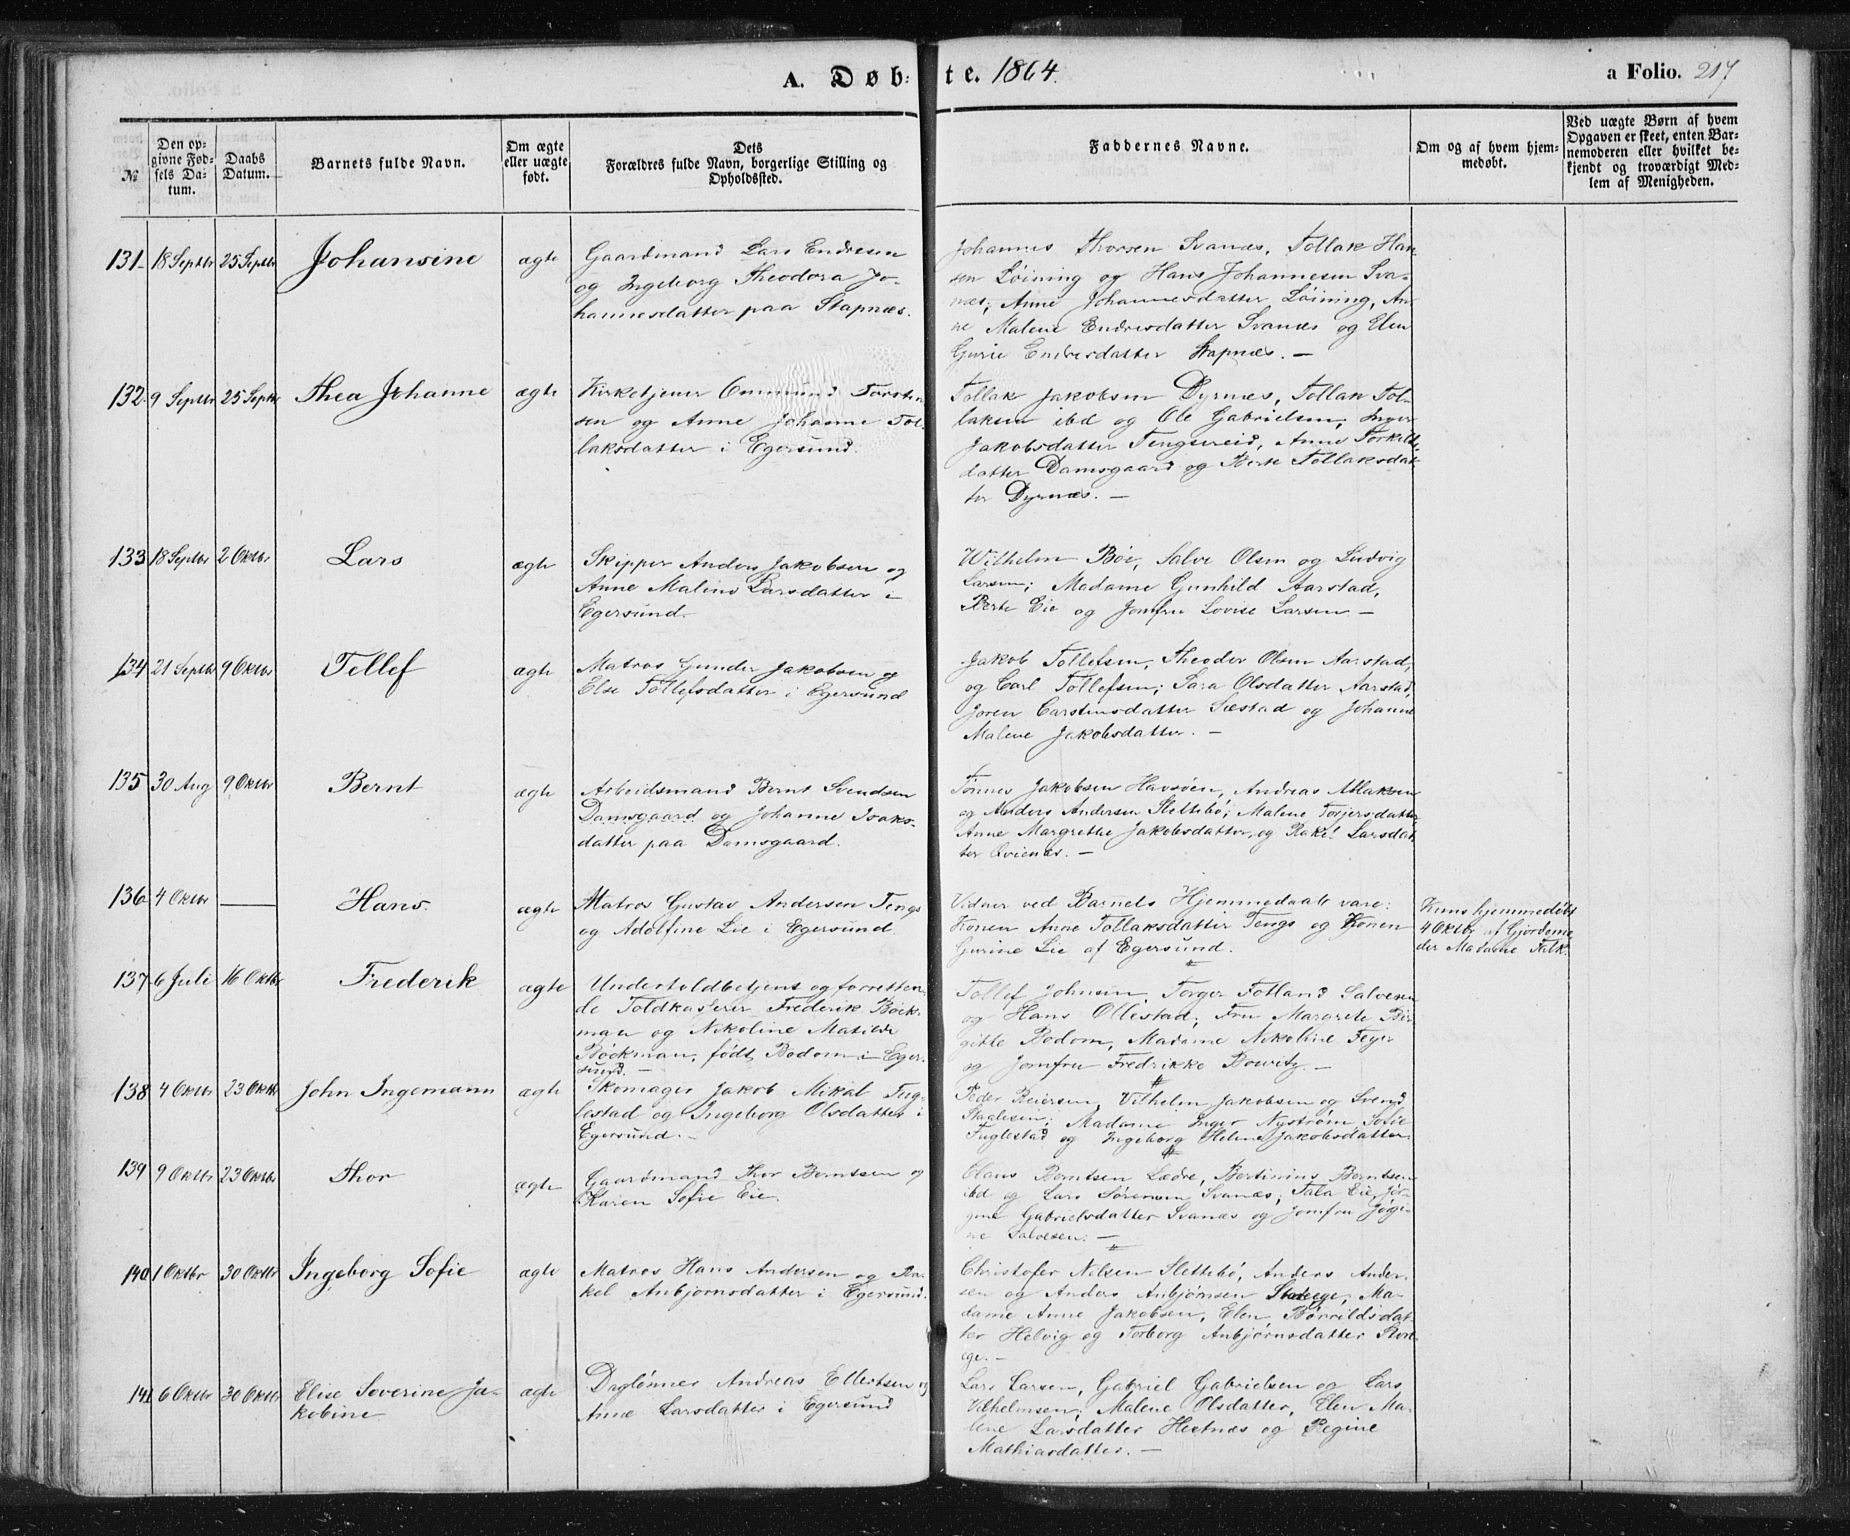 A. Døbte. 1864.
a Folio. 217
№
Den opgivne Fødsels Datum.
Daabs Datum.
Barnets fulde Navn.
Om ægte eller uægte født.
Dets Forældres fulde Navn, borgerlige Stilling og Opholdssted.
Faddernes Navne.
Om og af hvem hjemmedøbt.
Ved uægte Børn af hvem Opgaven er skeet, enten Barnemoderen eller hvilket bekjendt og troværdigt Medlem af Menigheden.
131. 18 Septbr 25 Septbr Johansine ægte
Gaardmand Lars Endresen
og Ingeborg Theodora Jo-
hannesdatter paa Stapnæs.
Johannes Thorsen Svanæs, Tollak Han-
sen Löining og Hans Johannesen Sva-
næs; Anne Johannesdatter Löining, An-
ne Malene Endresdatter Svanæs og Elen
Gurie Endresdatter Stapnæs. —
132. 9 Septbr 25 Septbr Thea Johanne ægte
Kirketjener Ommund Torsten-
sen og Anne Johanne Tol-
laksdatter i Egersund.
Tollak Jakobsen Dyrnæs, Tollak Tol-
laksen ibd og Ole Gabrielsen, Inger
Jakobsdatter Tengsereid, Anne Torkilds-
datter Damsgaard og Berte Tollaksdat-
ter Dyrnæs. —
133 18 Septbr 2 Oktbr Lars ægte
Skipper Anders Jakobsen og
Anne Maline Larsdatter i
Egersund.
Wilhelm Böe, Salve Olsen og Ludvig
Larsen; Madame Gunhild Aarstad,
Berte Eie og Jomfru Lovise Larsen —
134 21 Septbr 9 Oktbr Tellef ægte
Matros Gunder Jakobsen og
Else Tollefsdatter i Egersund
Jakob Tollefsen, Theodor Olsen Aarstad,
og Carl Tollefsen; Sara Olsdatter Aarstad,
Joren Carstensdatter Sæstad og Johanne
Malene Jakobsdatter. —
135 30 Aug 9 Oktbr Bernt ægte
Arbeidsmand Bernt Svendsen
Damsgaard og Johanne Isaks-
datter paa Damsgaard.
Tönnes Jakobsen Havsöen, Andreas Atlaksen
og Anders Andersen Slettebö; Malene Torjersdatter
Anne Margrethe Jakobsdatter og Rakel Larsdat-
ter Qvienæs. —
136 4 Oktbr — Hans. ægte
Matros Gustav Andersen Tengs
og Adolfine Lie i Egersund
Vidner ved Barnets Hjemmedaab vare:
Konen Anne Tollaksdatter Tengs og Konen
Gurine Lie af Egersund.
Kuns hjemmedöbt
4 Oktbr af Gjordemo-
der Madame Falk.
137 6 Juli 16 Oktbr Frederik ægte
Undertoldbetjent og forretten-
de Toldkaserer Frederik Böck-
man og Nikoline Matilde
Böckman, födt Bodom i Eger-
sund. —
Tollef Johnsen, Torger Fotland Salvesen
og Hans Ollestad; Fru Margrete Bir-
gitte Bodom, Madame Nikoline Feyer
og Jomfru Fredrikke Bowitz. —
138 4 Oktbr 23 Oktbr John Ingemann ægte
Skomager Jakob Mikal Fug-
lestad og Ingeborg Olsdatter i
Egersund. —
Peder Reiersen, Vilhelm Jakobsen og Svend
Staalesen; Madame Inger Nyström, Sofie
Fuglestad og Ingeborg Helene Jakobsdatter.
139 9 Oktbr 23 Oktbr Thor ægte
Gaardmand Thor Berntsen og
Karen Sofie Eie.
Claus Berntsen Lædre, Bertinius Berntsen
ibd og Lars Sörensen Svanæs, Tala Eie, Jör-
gine Gabrielsdatter Svanæs og Jomfru Jörgi-
ne Salvesen. —
140 1 Oktbr 30 Oktbr Ingeborg Sofie ægte
Matros Hans Andersen og Ra-
kel Anbjornsdatter i Egersund.
Christofer Nilsen Slettebö, Anders Ander-
sen og Anders Anbjörnsen Storege, Ma-
dame Anne Jakobsen, Elen Börrildsdat-
ter Helvig og Torborg Anbjörnsdatter Stor-
ege. —
141 6 Oktbr 30 Oktbr Elise Severine Ja-
kobine ægte
Daglönner Andreas Ellertsen og
Anne Larsdatter i Egersund
Lars Larsen, Gabriel Gabrielsen og Lars
Vilhelmsen, Malene Olsdatter, Elen Ma-
lene Larsdatter Hestnæs og Regine
Mathiasdatter. —